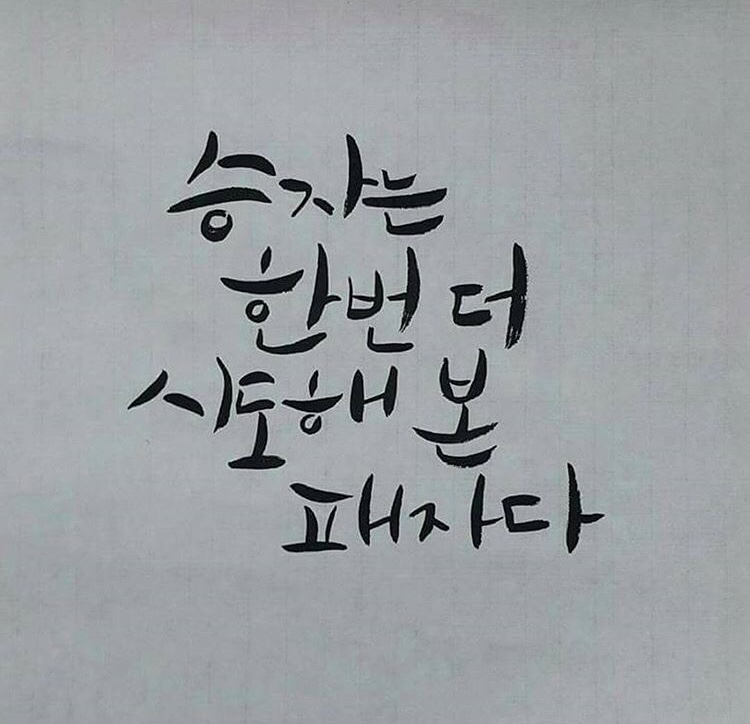 승자는
한번 더
시도해 본
패자다